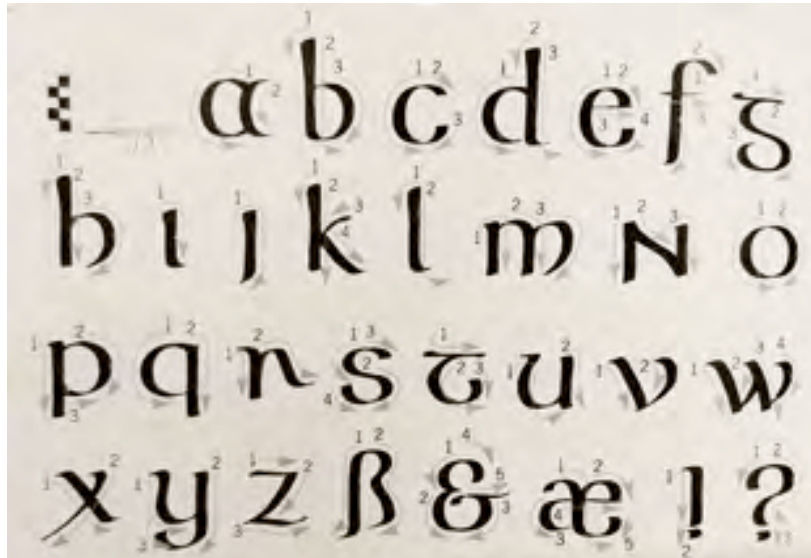 a b c d e f g
h ı ȷ k l m n o
p q r s t u v w
x y z ß & æ ! ?